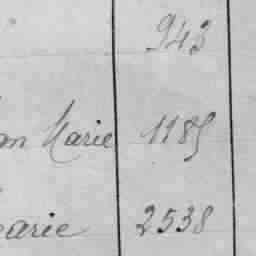 943
an Marie 1185
arie 2538